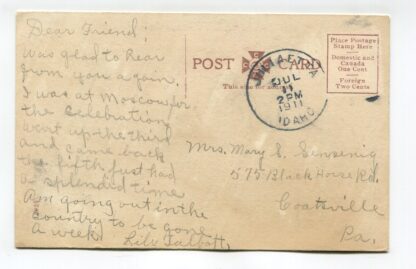 Dear Friend:
was glad to hear
from you again.
I was at Moscow for
the Celebration
went up the third
and came back
the fifth, just had
a splendid time
Am going out in the
country to be gone
a week. Lily Talbott,
POST CARD
This side for
JUL
11
2 PM
1911
IDAHO
Place Postage
Stamp Here
Domestic and
Canada
One Cent
Foreign
Two Cents
Mrs. Mary E. Sensenig
575 Black Horse Rd.
Coatsville
Pa.